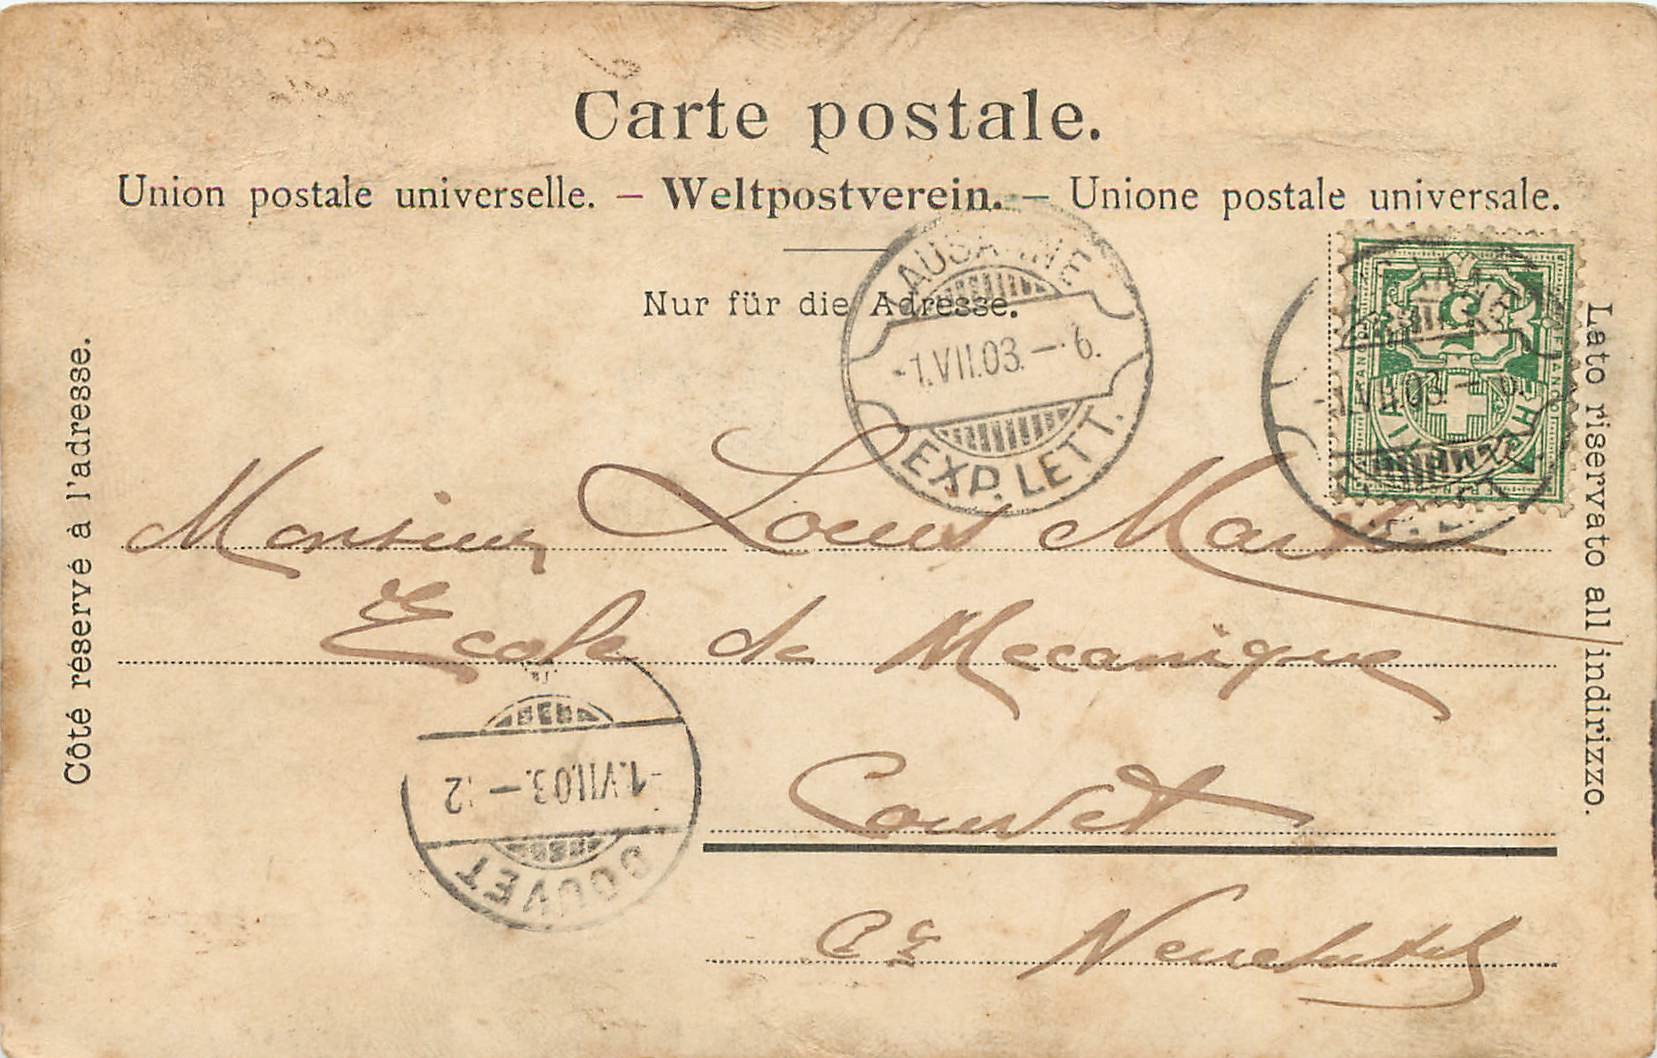 Carte postale.
Union postale universelle. – Weltpostverein. – Unione postale universale.
Nur für die Adresse.
Côté réservé à l'adresse.
Lato riservato all'indirizzo.
LAUSANNE
-1.VII.03.-6.
EXP. LETT.
FRANCO
5
HELVETIA
-1.VII.03.-
Monsieur Louis
Ecole de Mecanique
Couvet
Cn Neuchatel
-1.VII.03.-
COUVET